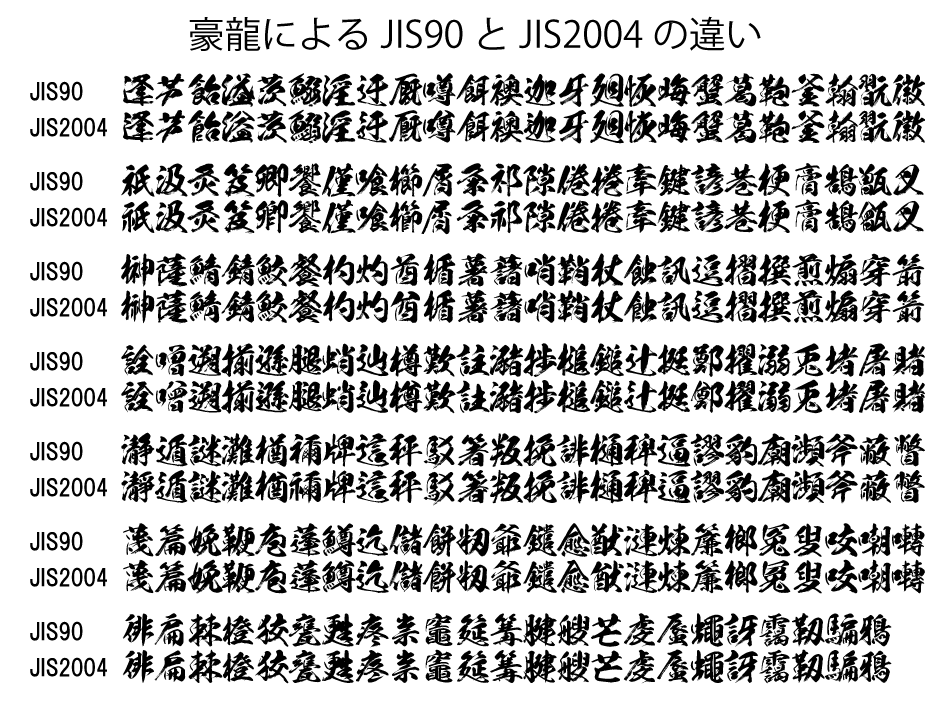 豪龍による JIS90 と JIS2004 の違い
JIS90 逢芦飴溢茨鰯淫迂厩噂餌襖迦牙廻恢晦蟹葛鞄釜翰翫徽
JIS2004 逢芦飴溢茨鰯淫迂厩噂餌襖迦牙廻恢晦蟹葛鞄釜翰翫徽
JIS90 祇汲灸笈卿饗僅喰櫛屑粂祁隙倦捲牽鍵諺巷梗膏鵠甑叉
JIS2004 祇汲灸笈卿饗僅喰櫛屑粂祁隙倦捲牽鍵諺巷梗膏鵠甑叉
JIS90 榊薩鯖錆鮫餐杓灼酋楯薯藷哨鞘杖蝕訊逗摺撰煎煽穿箭
JIS2004 榊薩鯖錆鮫餐杓灼酋楯薯藷哨鞘杖蝕訊逗摺撰煎煽穿箭
JIS90 詮噌遡揃遜腿蛸辿樽歎註瀦捗槌鎚辻挺鄭擢溺兎堵屠賭
JIS2004 詮噌遡揃遜腿蛸辿樽歎註瀦捗槌鎚辻挺鄭擢溺兎堵屠賭
JIS90 瀞遁謎灘楢禰牌這秤駁箸叛挽誹樋稗逼謬豹廟瀕斧蔽瞥
JIS2004 瀞遁謎灘楢禰牌這秤駁箸叛挽誹樋稗逼謬豹廟瀕斧蔽瞥
JIS90 蔑篇娩鞭庖蓬鱒迄儲餅籾爺鑓愈猷漣煉簾榔冤叟咬嘲囀
JIS2004 蔑篇娩鞭庖蓬鱒迄儲餅籾爺鑓愈猷漣煉簾榔冤叟咬嘲囀
JIS90 徘扁棘橙狡甕甦疼祟竈筵篝腱艘芒虔蜃蠅訝靄靱騙鴉
JIS2004 徘扁棘橙狡甕甦疼祟竈筵篝腱艘芒虔蜃蠅訝靄靱騙鴉